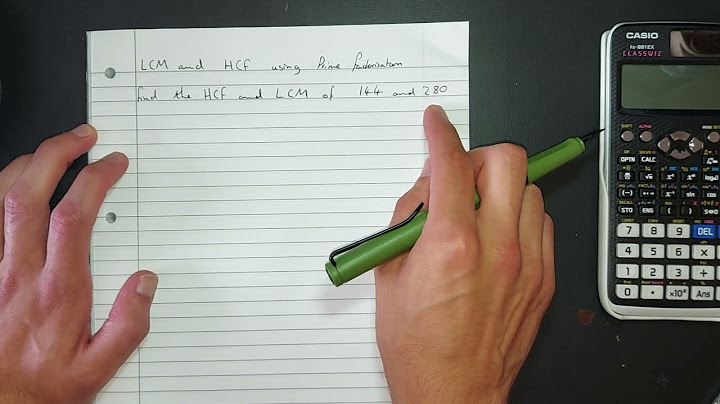 LCM and HCF using Prime factorisation
find the HCF and LCM of 144 and 280
CASIO
fx-991EX
CLASSWIZ
SHIFT ALPHA MENU
OPTN CALC
STO ENG
7 8 9 DEL
4 5 6 ×
1 2 3 +
0 . ×10ˣ Ans